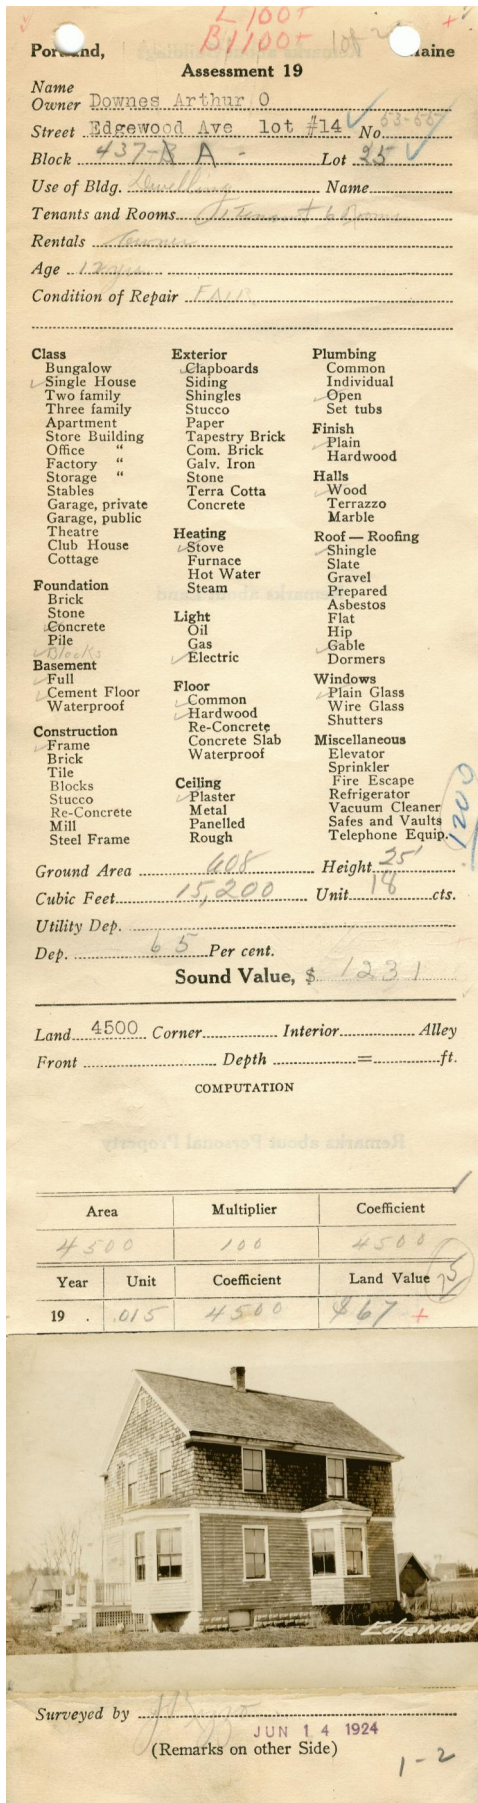 L 100+
B 1100+ lot 2
Portland, Maine
Assessment 19
Name
Owner Downes Arthur O
Street Edgewood Ave lot #14 No. 53-55
Block 437-B A - Lot 25
Use of Bldg. Dwelling Name
Tenants and Rooms 1 Tenant 6 Rooms
Rentals Owner
Age 12 yrs
Condition of Repair FAIR
Class
Bungalow
Single House
Two family
Three family
Apartment
Store Building
Office "
Factory "
Storage "
Stables
Garage, private
Garage, public
Theatre
Club House
Cottage
Foundation
Brick
Stone
Concrete
Pile
Blocks
Basement
Full
Cement Floor
Waterproof
Construction
Frame
Brick
Tile
Blocks
Stucco
Re-Concrete
Mill
Steel Frame
Exterior
Clapboards
Siding
Shingles
Stucco
Paper
Tapestry Brick
Com. Brick
Galv. Iron
Stone
Terra Cotta
Concrete
Heating
Stove
Furnace
Hot Water
Steam
Light
Oil
Gas
Electric
Floor
Common
Hardwood
Re-Concrete
Concrete Slab
Waterproof
Ceiling
Plaster
Metal
Panelled
Rough
Plumbing
Common
Individual
Open
Set tubs
Finish
Plain
Hardwood
Halls
Wood
Terrazzo
Marble
Roof — Roofing
Shingle
Slate
Gravel
Prepared
Asbestos
Flat
Hip
Gable
Dormers
Windows
Plain Glass
Wire Glass
Shutters
Miscellaneous
Elevator
Sprinkler
Fire Escape
Refrigerator
Vacuum Cleaner
Safes and Vaults
Telephone Equip.
1200
Ground Area 608 Height 25'
Cubic Feet 15,200 Unit 18 cts.
Utility Dep.
Dep. 65 Per cent.
Sound Value, $ 1231
Land 4500 Corner Interior Alley
Front Depth = ft.
COMPUTATION
Area Multiplier Coefficient
4500 100 4500
Year Unit Coefficient Land Value 75
19 . .015 4500 $67 +
Edgewood
Surveyed by
JUN 14 1924
(Remarks on other Side)
1-2